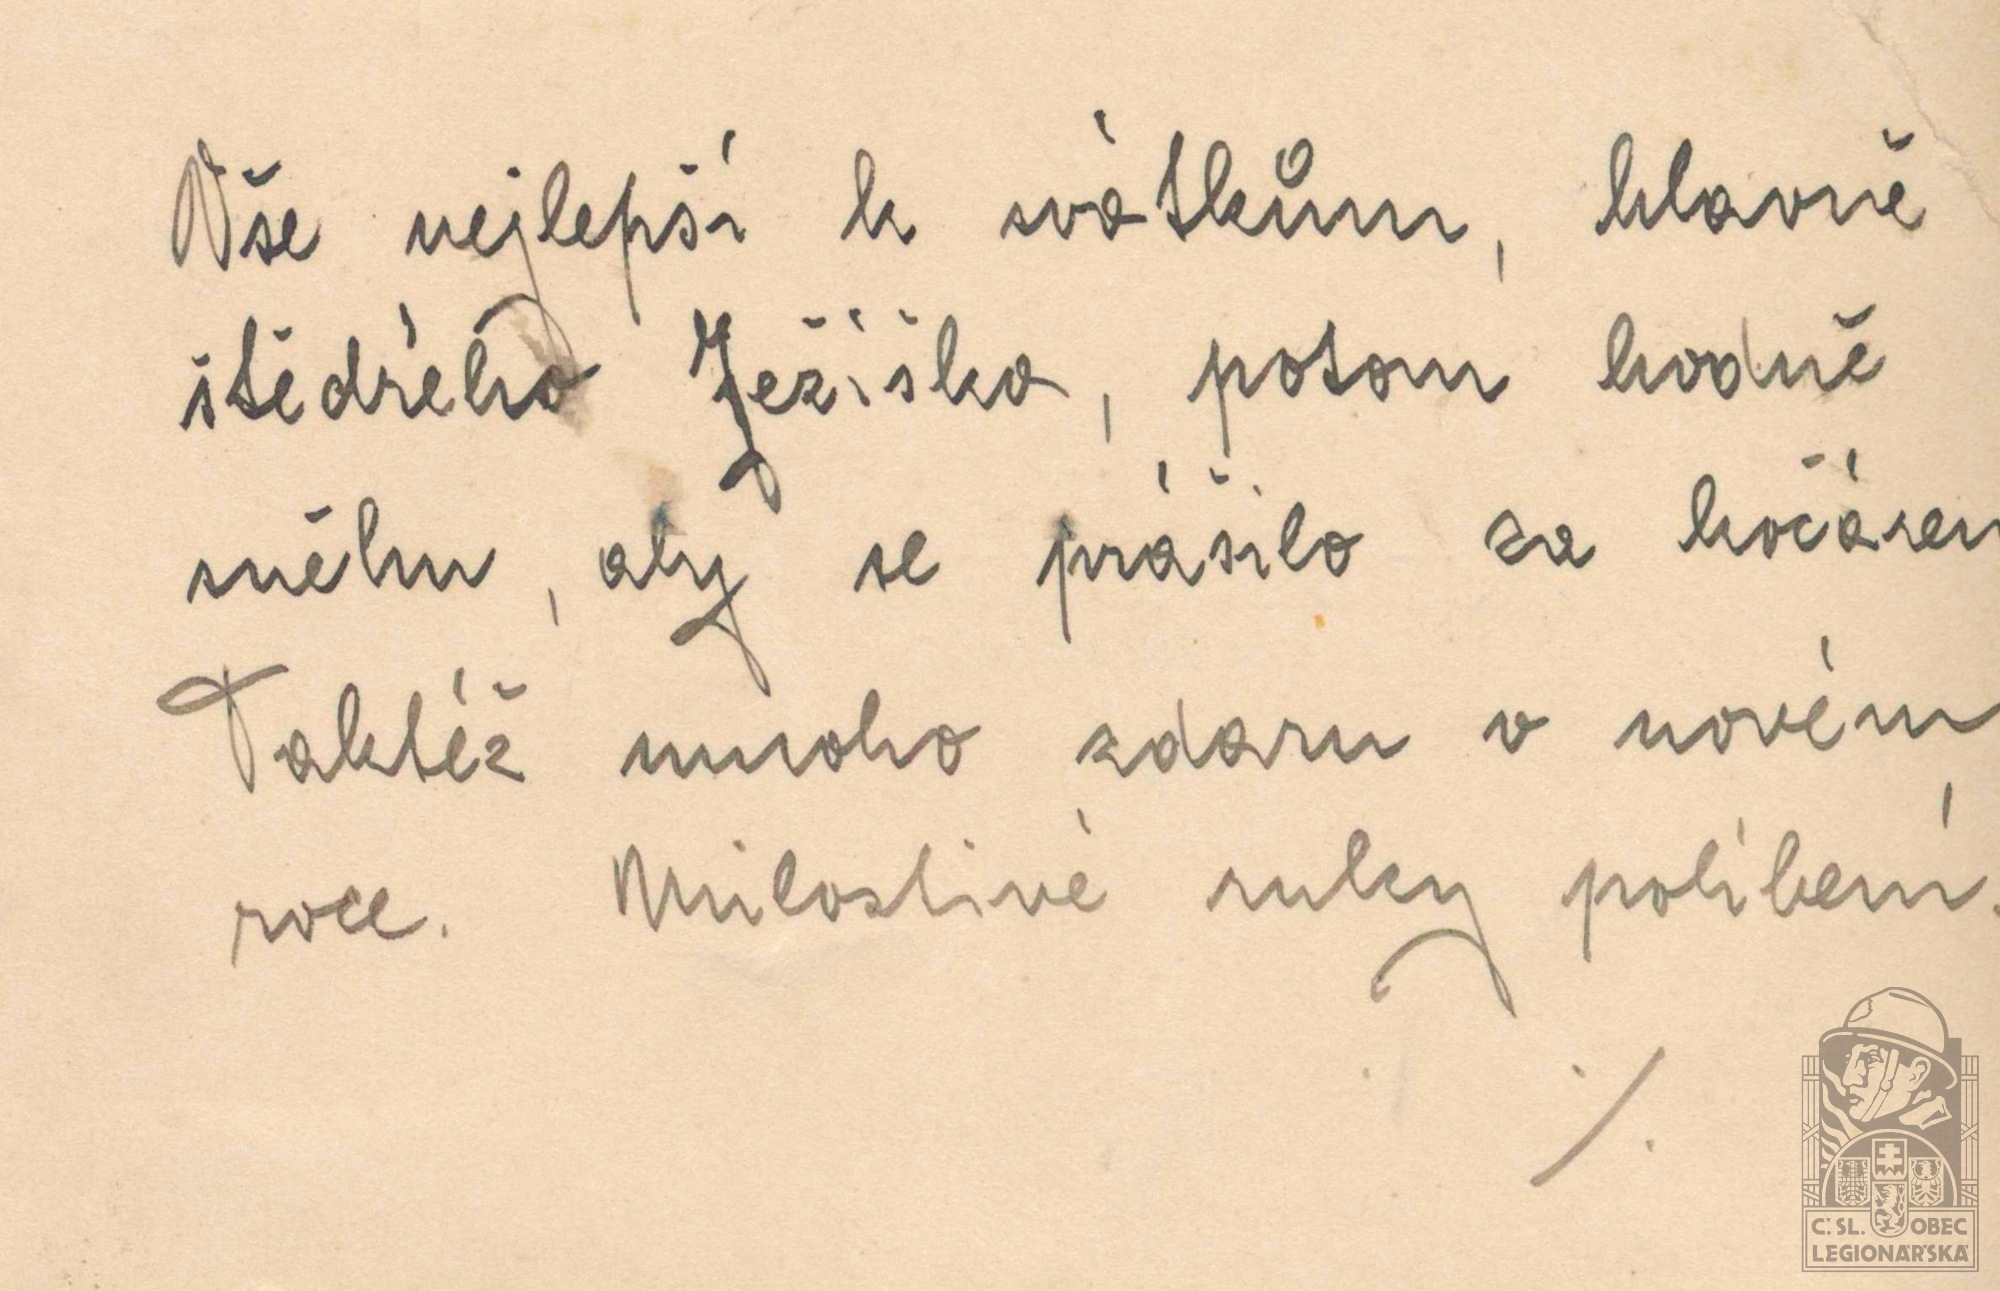 Vše nejlepší k svátkům, hlavně
štědrého Ježíška, potom hodně
sněhu, aby se prášilo za kočárem
Taktéž mnoho zdaru v novém
roce. Milostivé ruky políbení.
./.
Č. SL. OBEC
LEGIONÁŘSKÁ